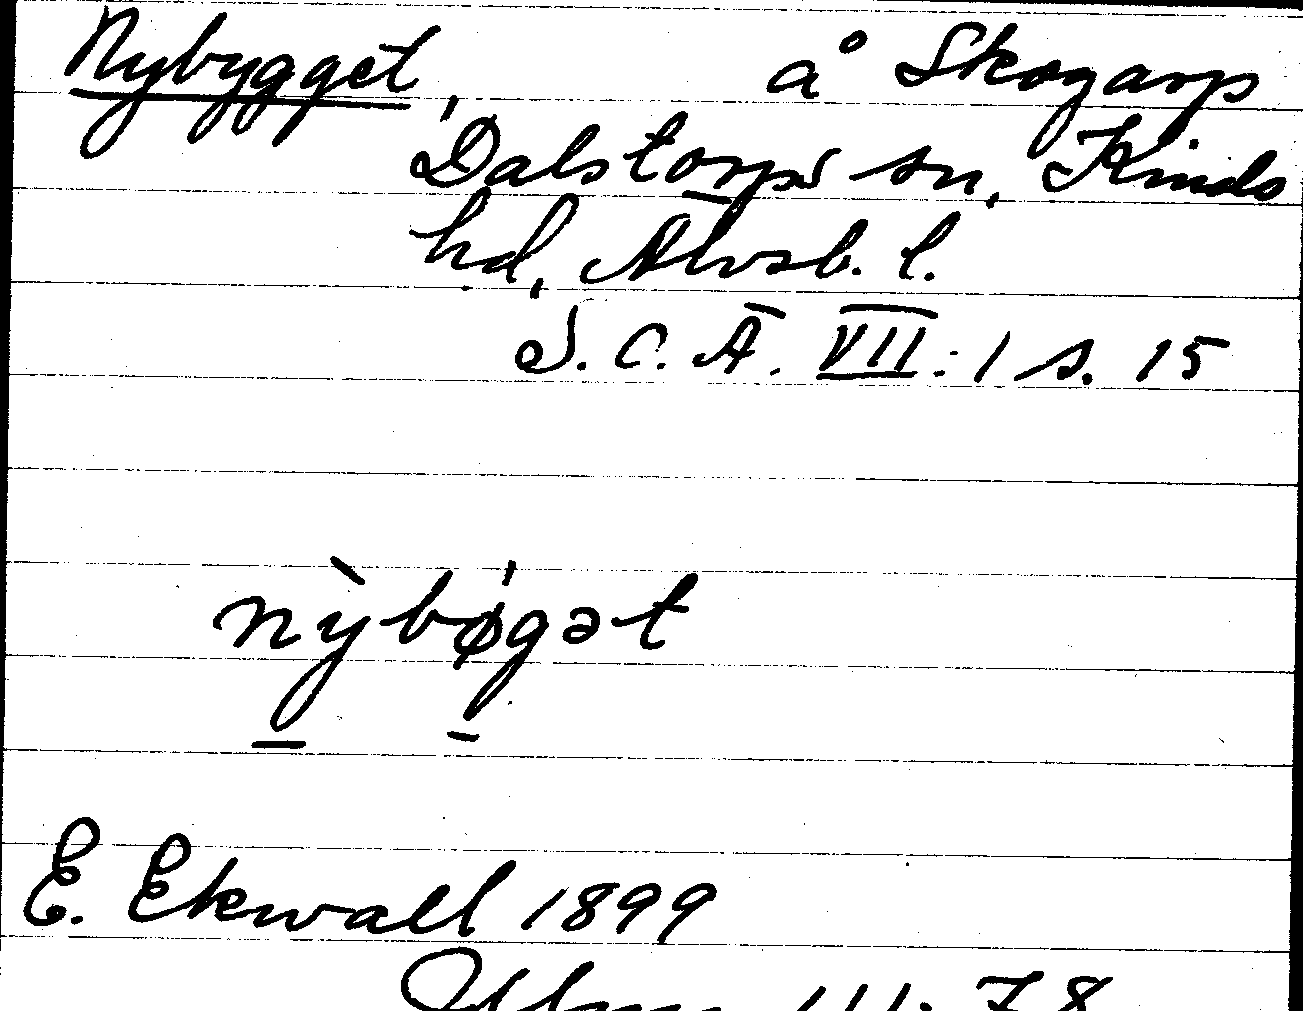 Nybygget, å Skogarp
Dalstorps sn, Kinds
hd, Älvsb. l.
S. C. A. VII: 1 s. 15
nỳbø̍gət
E. Ekwall 1899
III: 78